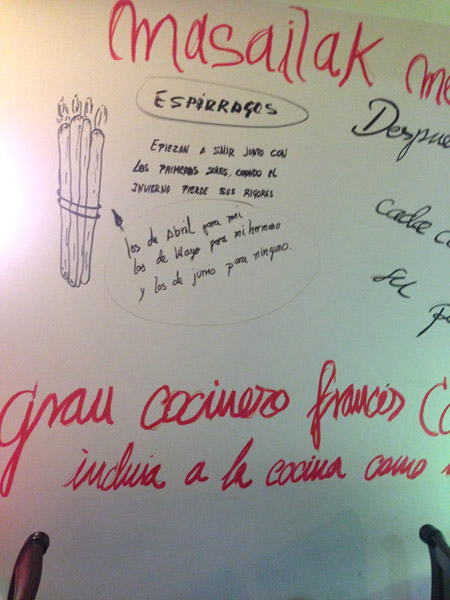 masailak me
ESPÍRRAGOS
EPIEZAN A SALIR JUNTO CON
LOS PRIMEROS SOLES, CUANDO EL
INVIERNO PIERDE SUS RIGORES
los de Abril para mi
los de Mayo para mi hermano
y los de junio para ninguno.
Despue
cada c
sel
gran cocinero francés
incluia a la cocina como